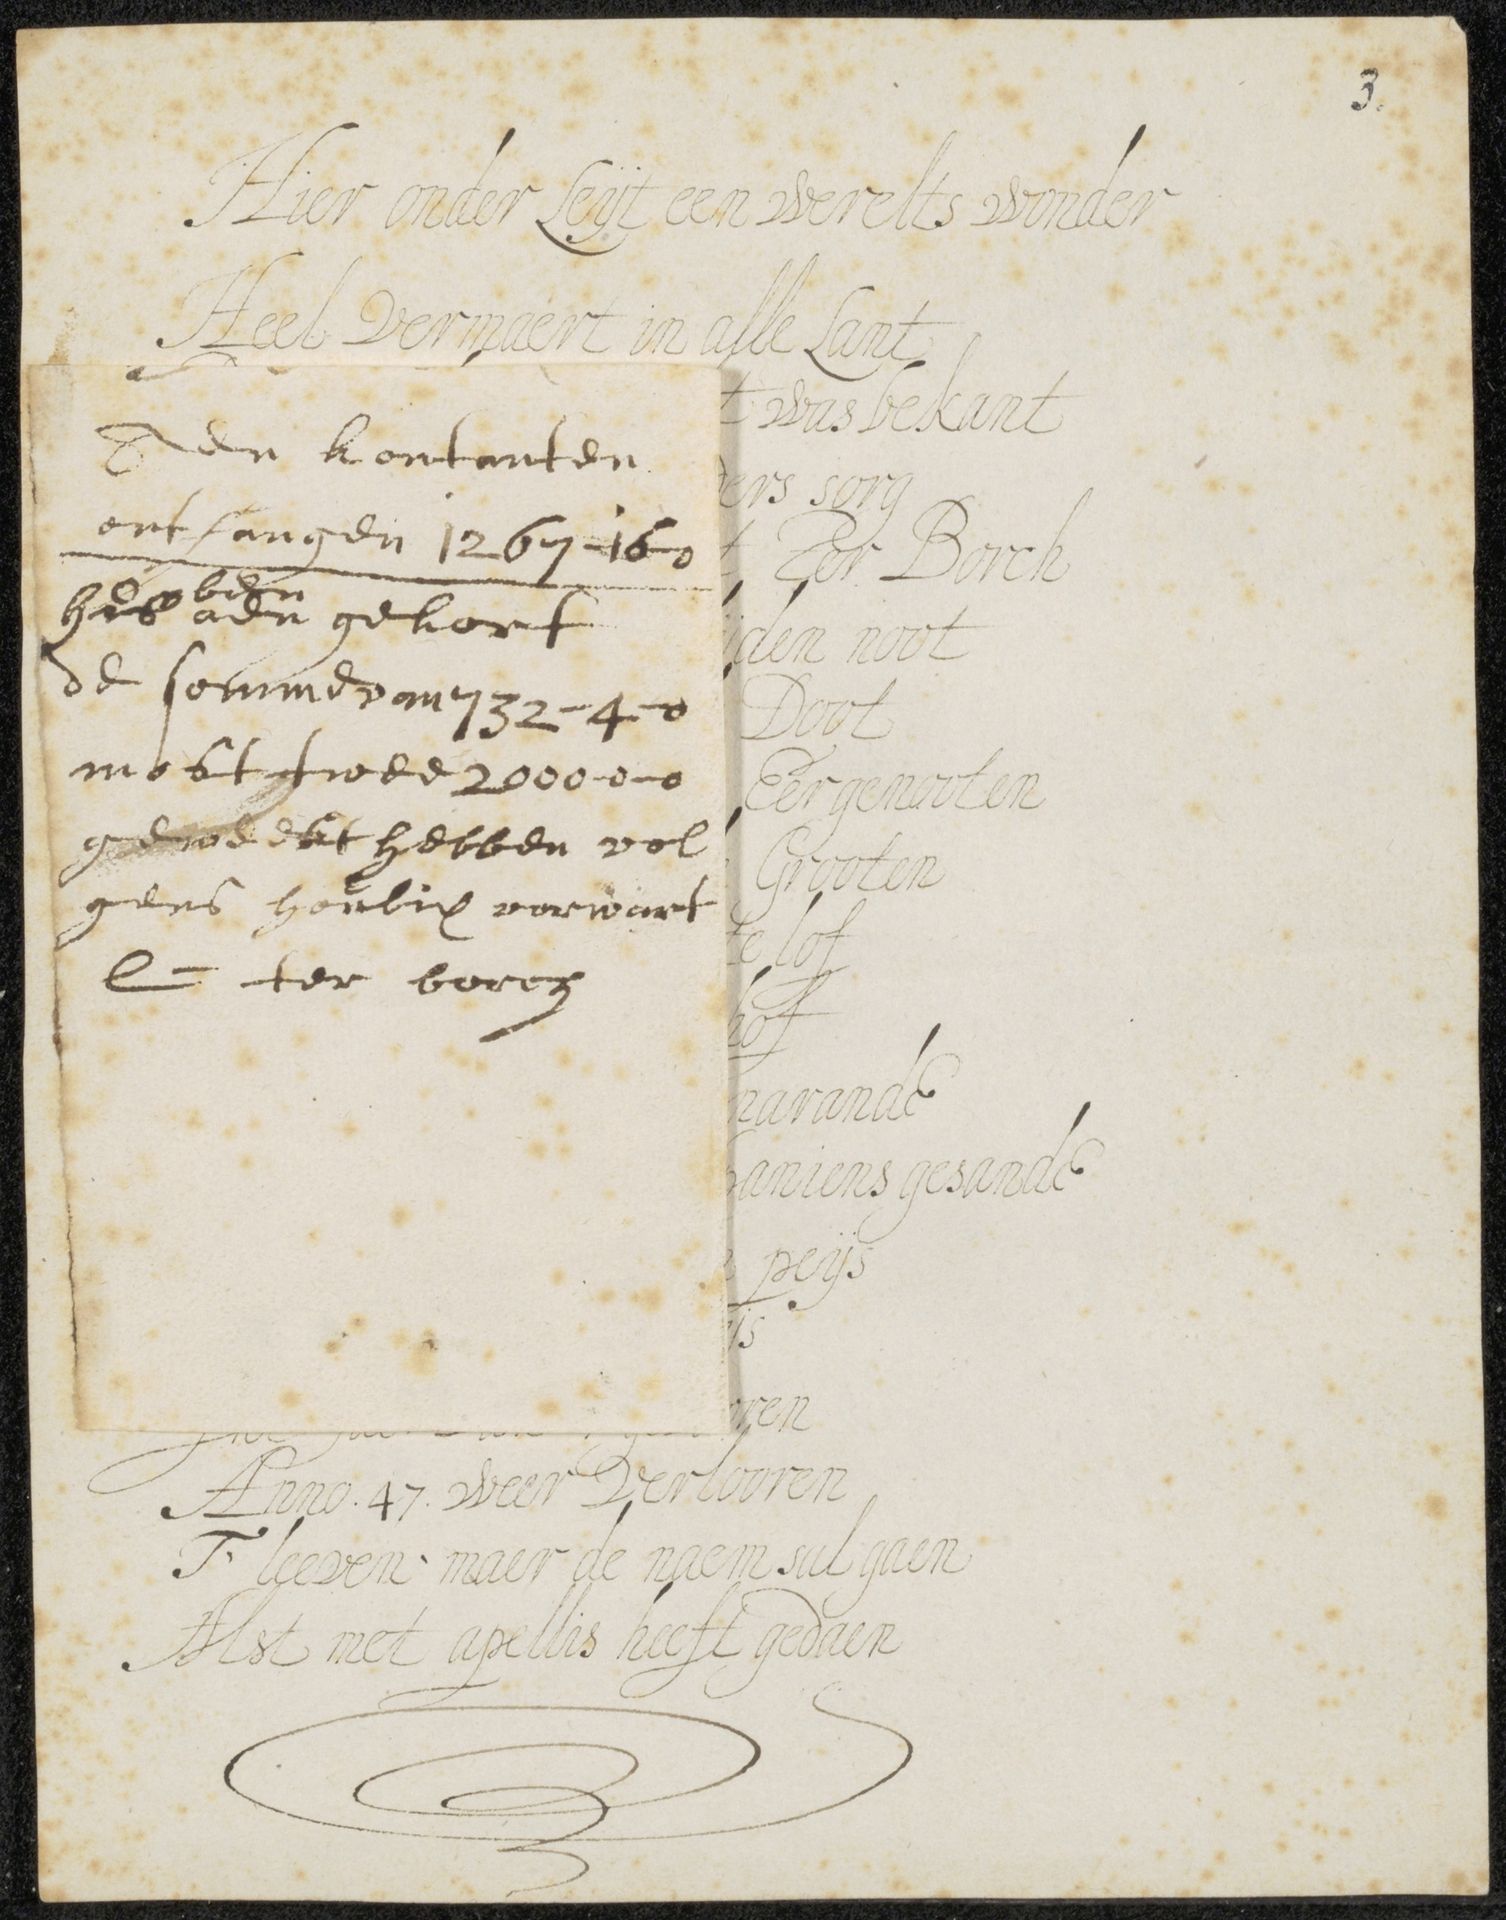 3.
Hier onder Leijt een werelts wonder
Heel vermaert in alle Lant
t was bekant
ders sorg
t Ter Borch
ijden noot
Doot
Eergenooten
Grooten
te lof
hof
narande
paniens gesande
peijs
ijs
oren
Anno. 47. weer Verlooren
T' leeven maer de naem sal gaen
Alst met apellis heeft gedaen
Aen kontanten
ontfangen 1267-16-0
hebben
aen gekort
de somme van 732-4-0
most twee 2000-0-0
geweest hebben vol
gens houlix vorwart
ter borch